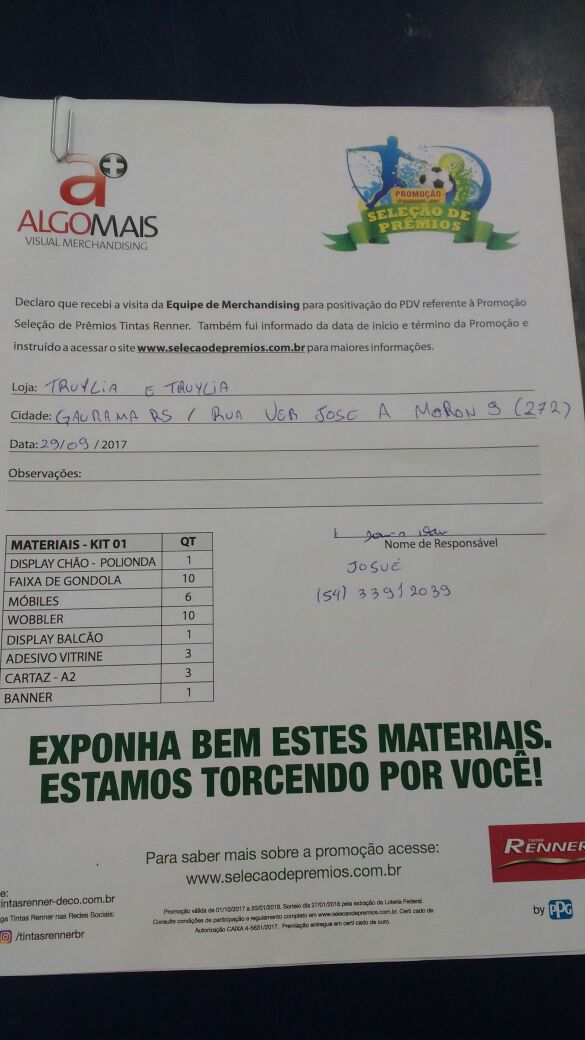 a+
ALGOMAIS
VISUAL MERCHANDISING
PROMOÇÃO
SELEÇÃO DE
PRÊMIOS
Declaro que recebi a visita da Equipe de Merchandising para positivação do PDV referente à Promoção
Seleção de Prêmios Tintas Renner. Também fui informado da data de início e término da Promoção e
instruído a acessar o site www.selecaodepremios.com.br para maiores informações.
Loja: TRUYLIA E TRUYLIA
Cidade: GAURAMA RS / RUA VER JOSE A MORON 9 (272)
Data: 29/09 / 2017
Observações:
Nome de Responsável
JOSUÉ
(54) 3391 2039
MATERIAIS - KIT 01 QT
DISPLAY CHÃO - POLIONDA 1
FAIXA DE GONDOLA 10
MÓBILES 6
WOBBLER 10
DISPLAY BALCÃO 1
ADESIVO VITRINE 3
CARTAZ - A2 3
BANNER 1
EXPONHA BEM ESTES MATERIAIS.
ESTAMOS TORCENDO POR VOCÊ!
Para saber mais sobre a promoção acesse:
www.selecaodepremios.com.br
TINTAS
RENNER
by PPG
e:
tintasrenner-deco.com.br
ga Tintas Renner nas Redes Sociais:
/tintasrennerbr
Promoção válida de 01/10/2017 a 20/01/2018. Sorteio dia 27/01/2018 pela extração da Loteria Federal.
Consulte condições de participação e regulamento completo em www.selecaodepremios.com.br. Certi cado de
Autorização CAIXA 4-5631/2017. Premiação entregue em certi cado de ouro.